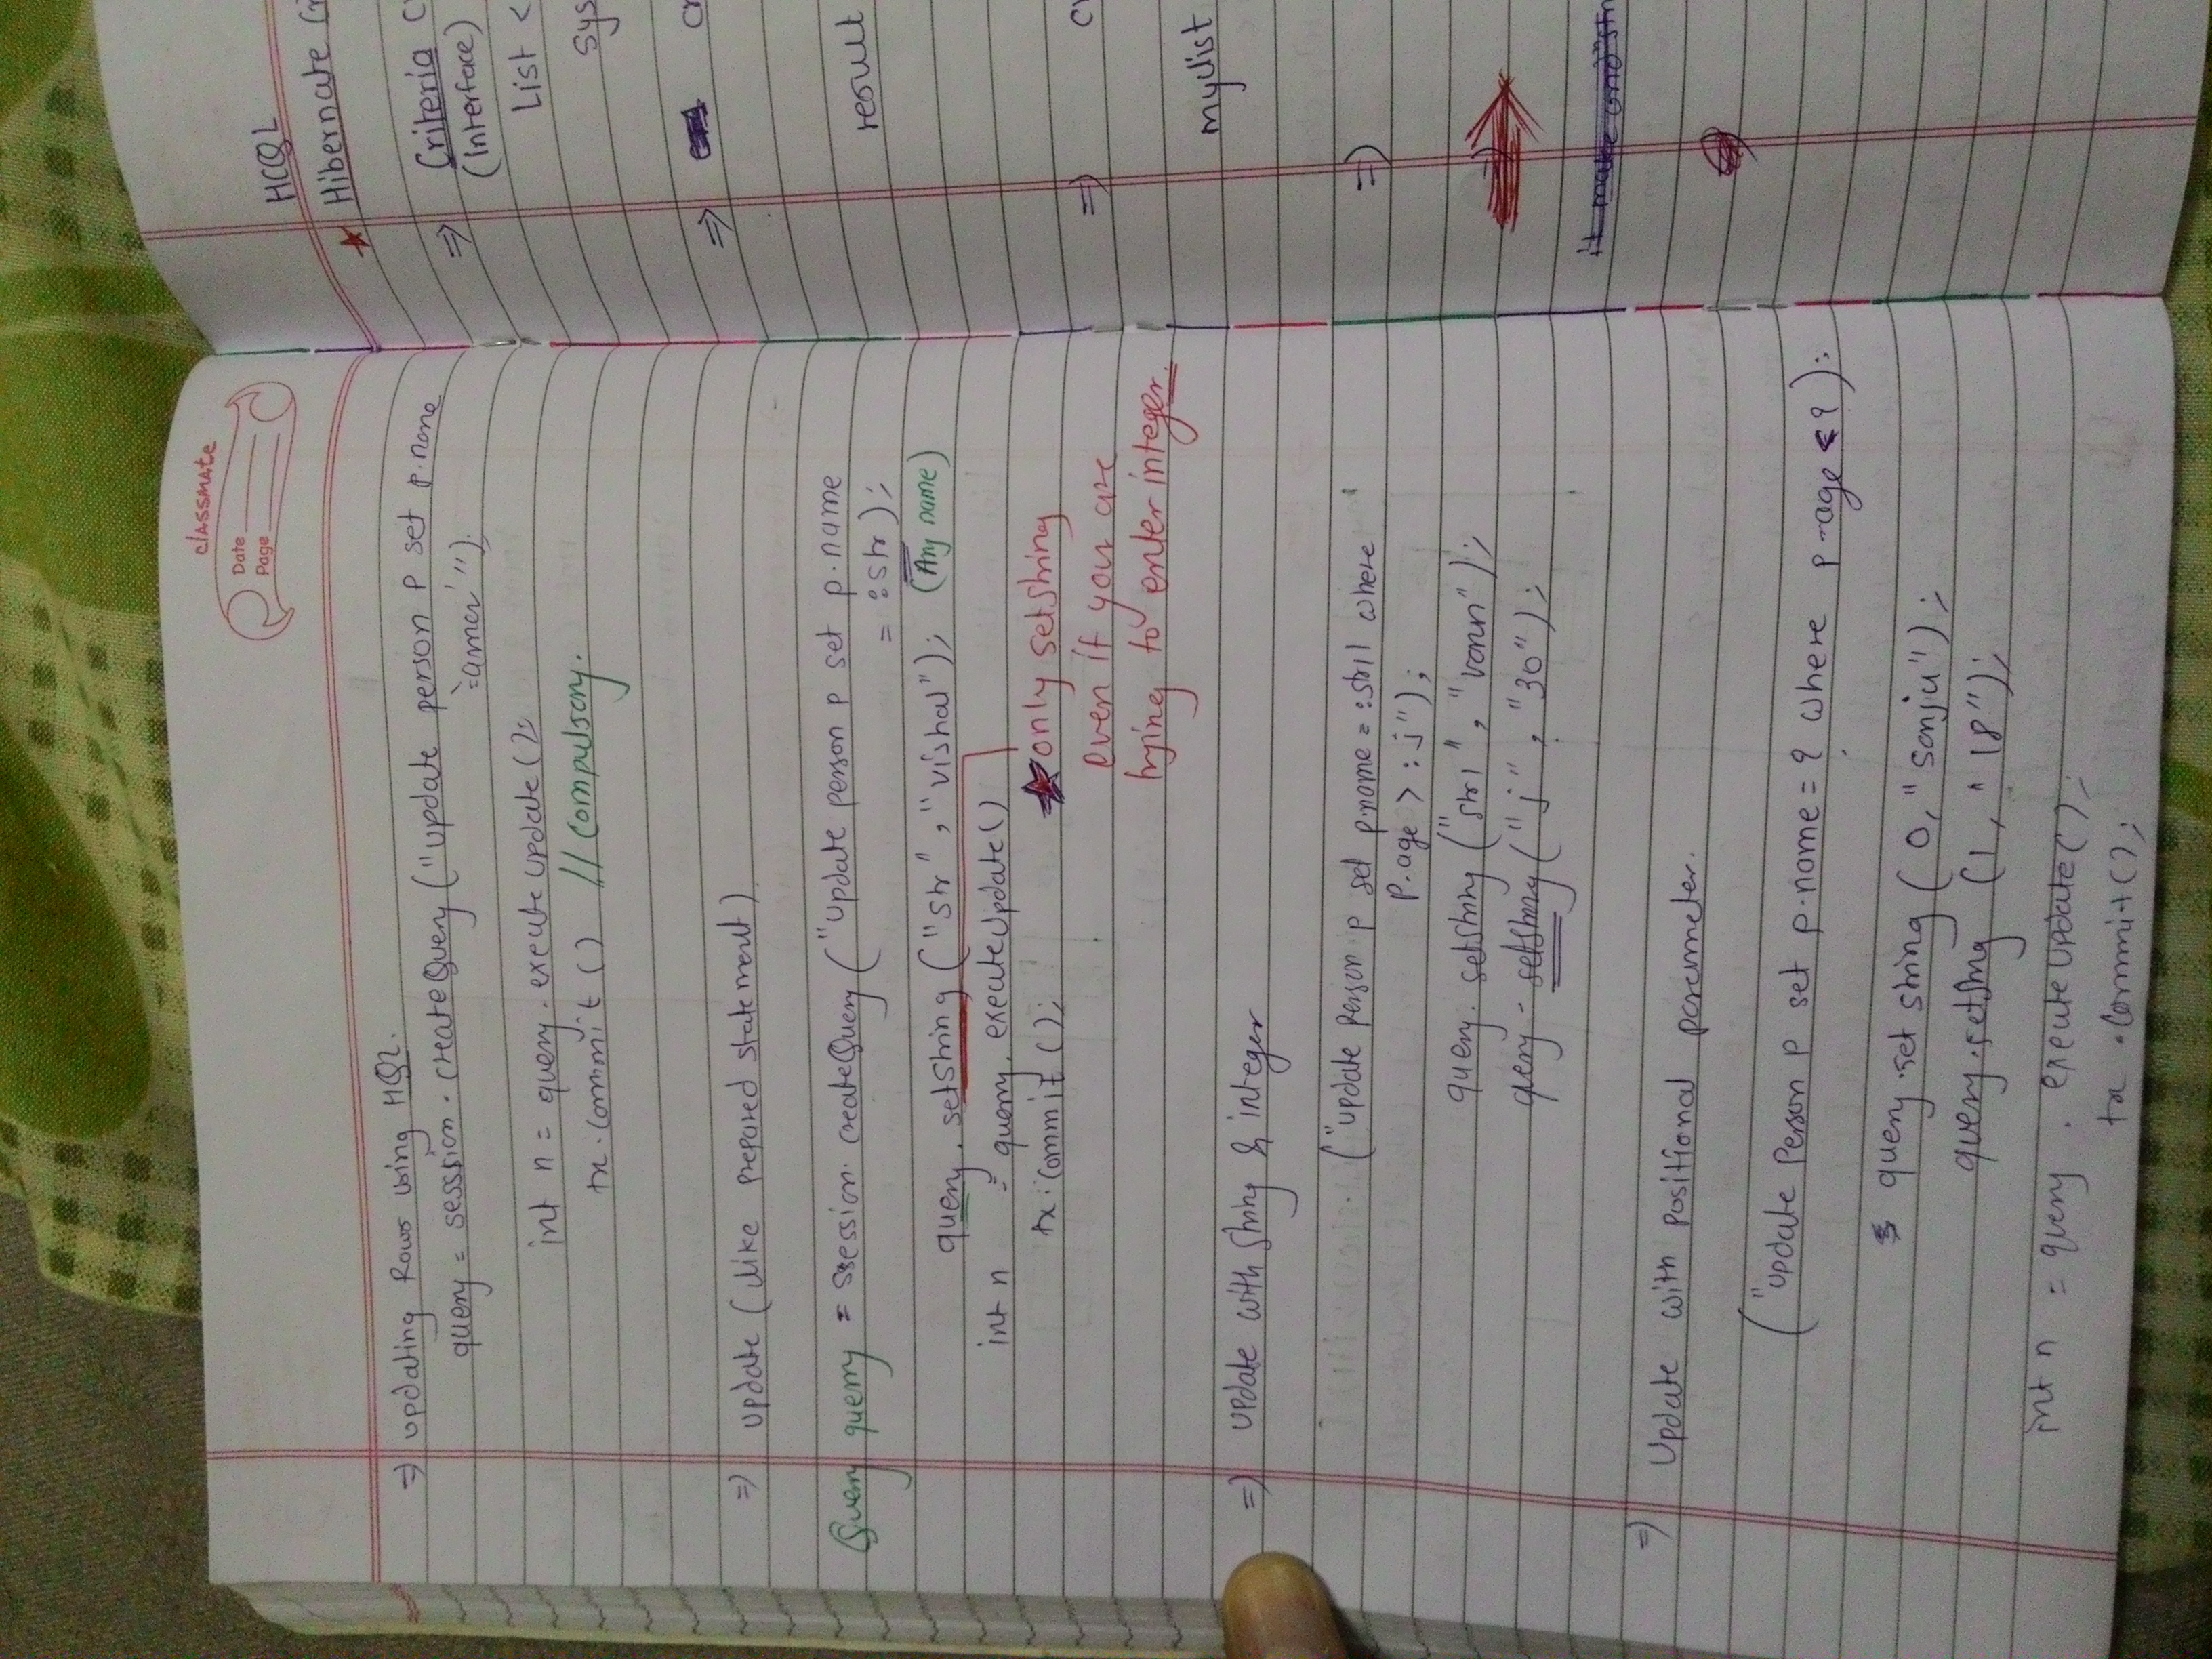 classmate
Date
Page
=> Updating Rows using HQL.
query = sesssion.createQuery("update person p set p.name
='amar'");
int n = query.executeUpdate();
tx.commit() // Compulsory.
=> update (like prepared statement)
Query query = session.createQuery("update person p set p.name
= :str);
query.setString("str","vishal"); (Any name)
int n = query.executeUpdate()
tx.commit();
★ only setString
even if you are
trying to enter integer.
=> update with string & integer
("update person p set p.name = :str1 where
p.age > :j");
query.setString("str1", "varun");
query.setString("j", "30");
=> Update with positional parameter.
("update Person p set p.name = ? where p.age < ?);
query.set string (0, "sanju");
query.setString (1, "18");
int n = query.executeUpdate();
tx.commit();
HCQL
★ Hibernate
=> Criteria
(Interface)
List <
sys
=> cr
result
=> cr
mylist
=>
it make and